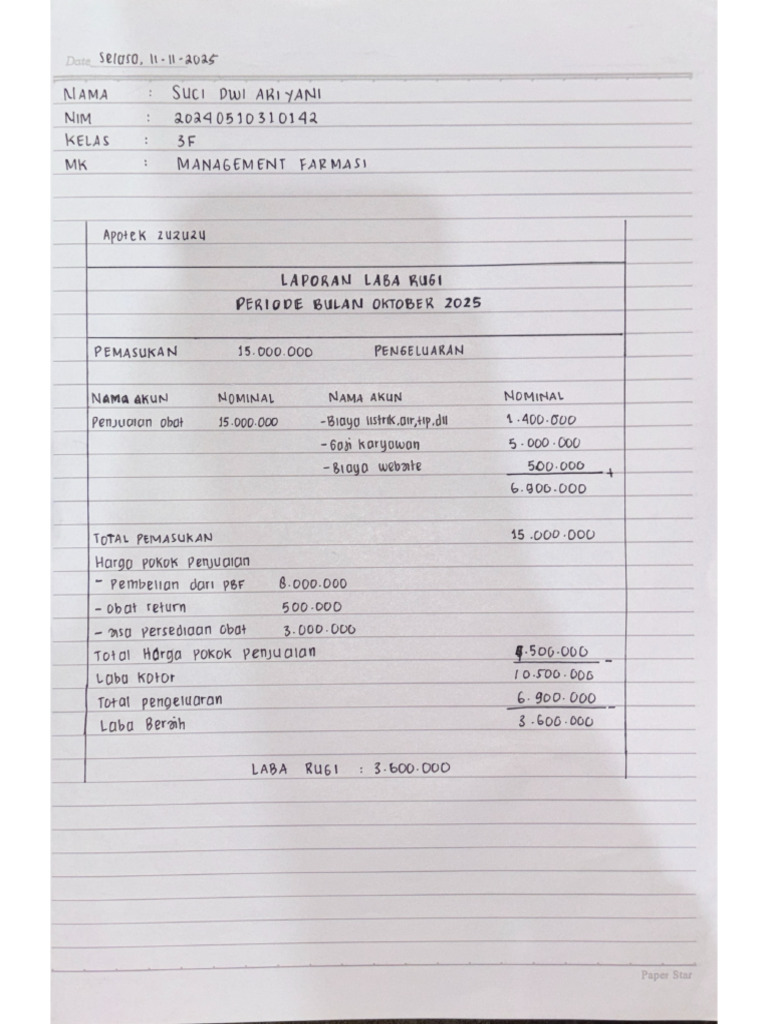 Date Selasa, 11-11-2025
NAMA : SUCI DWI ARIYANI
NIM : 20240510310142
KELAS : 3F
MK : MANAGEMENT FARMASI
Apotek zuzuzu
LAPORAN LABA RUGI
PERIODE BULAN OKTOBER 2025
PEMASUKAN 15.000.000 PENGELUARAN
NAMA AKUN NOMINAL NAMA AKUN NOMINAL
Penjualan obat 15.000.000 -Biaya listrik,air,tlp,dll 1.400.000
-Gaji karyawan 5.000.000
-Biaya website 500.000 +
6.900.000
TOTAL PEMASUKAN 15.000.000
Harga pokok penjualan
- Pembelian dari PBF 8.000.000
- obat return 500.000
- sisa persediaan obat 3.000.000
Total Harga pokok penjualan 4.500.000 -
Laba kotor 10.500.000
Total pengeluaran 6.900.000 -
Laba Bersih 3.600.000
LABA RUGI : 3.600.000
Paper Star